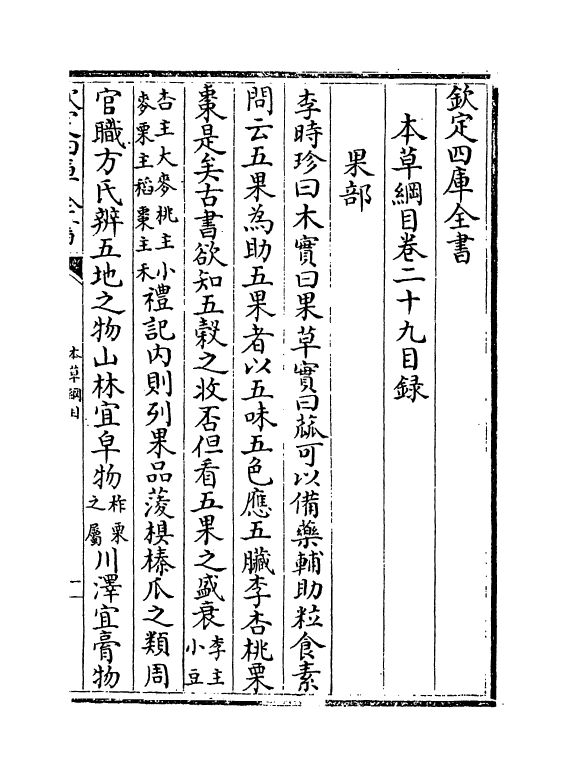 欽定四庫全書
本草綱目卷二十九目録
果部
李時珍曰木實曰果草實曰蓏可以備藥輔助粒食素
問云五果為助五果者以五味五色應五臟李杏桃栗
棗是矣古書欲知五穀之收否但看五果之盛衰李主小豆
杏主大麥桃主小麥栗主稻棗主禾禮記内則列果品菱椇榛瓜之類周
官職方氏辨五地之物山林宜皁物柞栗之屬川澤宜膏物
本草綱目
一